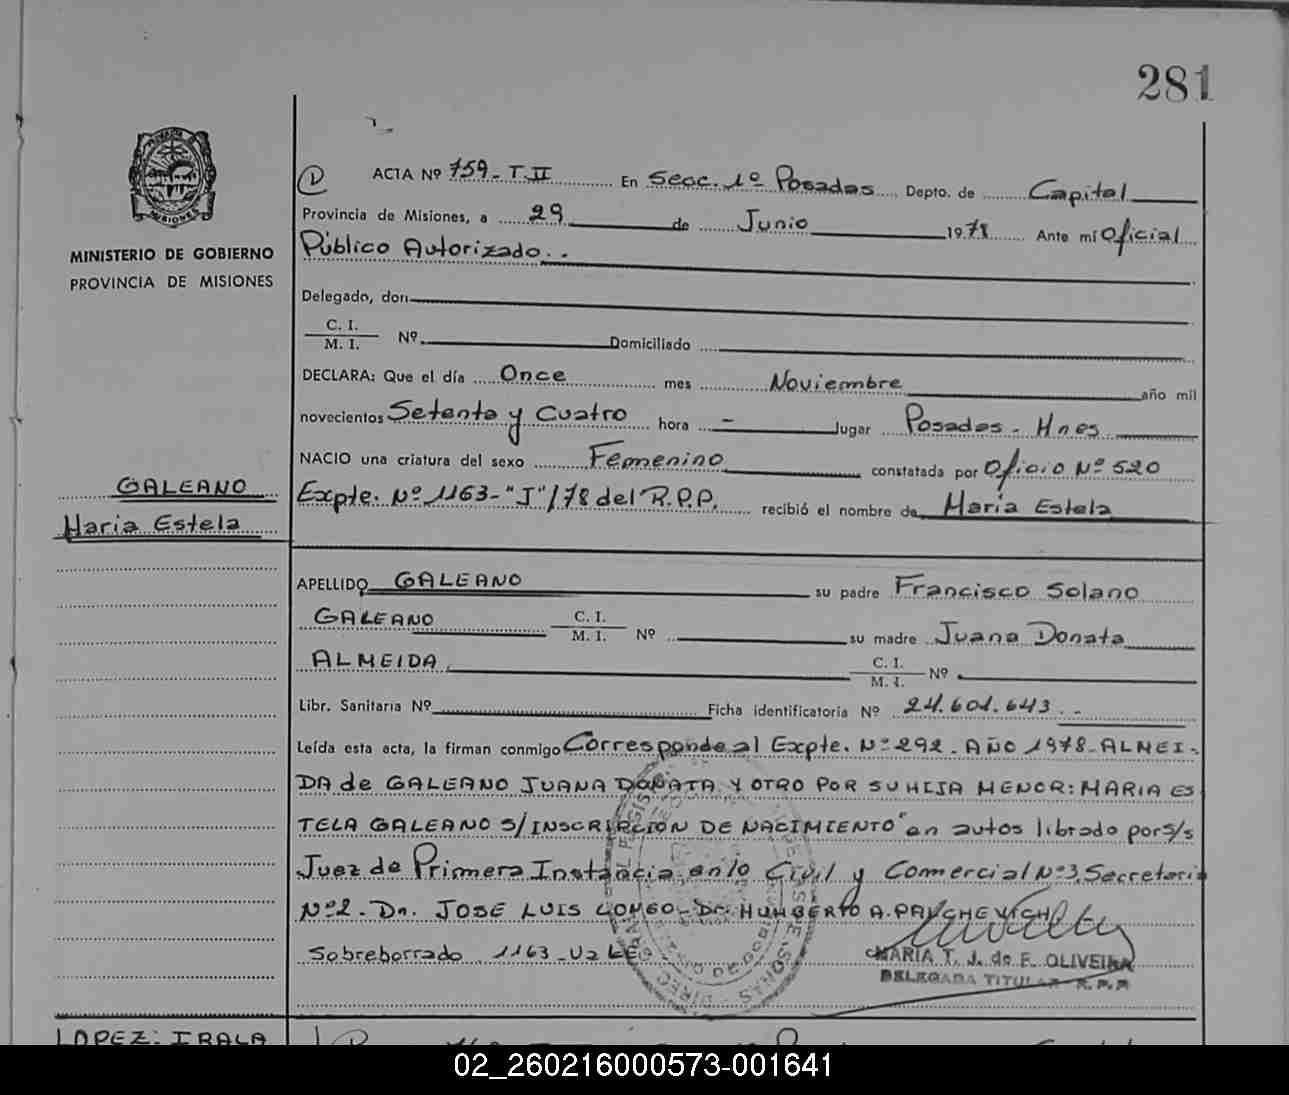 281
ACTA Nº 759 - T. II En Secc. 1º Posadas Depto. de Capital
Provincia de Misiones, a 29 de Junio 1978 Ante mí Oficial
Público Autorizado..
MINISTERIO DE GOBIERNO
PROVINCIA DE MISIONES
Delegado, don
C. I.
M. I. Nº Domiciliado
DECLARA: Que el día Once mes Noviembre año mil
novecientos Setenta y Cuatro hora - lugar Posadas - Mnes
NACIO una criatura del sexo Femenino constatada por Oficio Nº 520
GALEANO
Maria Estela
Expte. Nº 1163-"J"/78 del R.P.P. recibió el nombre de María Estela
APELLIDO GALEANO su padre Francisco Solano
GALEANO C. I. M. I. Nº su madre Juana Donata
ALMEIDA. C. I. M. I. Nº
Libr. Sanitaria Nº Ficha identificatoria Nº 24.601.643.-
Leída esta acta, la firman conmigo Corresponde al Expte. Nº 292 - AÑO 1978 - ALMEI-
DA de GALEANO JUANA DONATA Y OTRO POR SU HIJA MENOR: MARIA ES
TELA GALEANO S/INSCRIPCION DE NACIMIENTO" en autos librado por s/s
Juez de Primera Instancia en lo Civil y Comercial Nº 3, Secretaria
Nº 2 - Dr. JOSE LUIS LONGO - Dr. HUMBERTO A.
Sobreborrado 1163 - VALE
MARIA T. J. de F. OLIVEIRA
DELEGADA TITULAR - R.P.P.
LOPEZ: IRALA
02_260216000573-001641